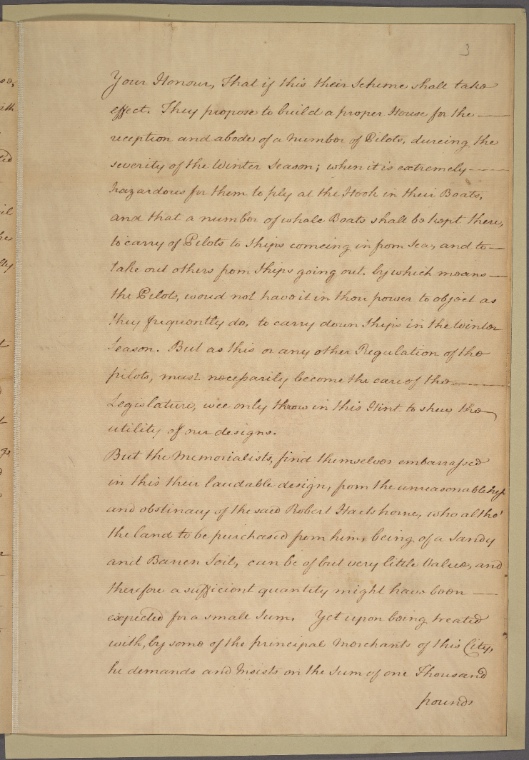 3
Your Honour, That if this their Scheme shall take
effect. They propose to build a proper House for the
reception and abode of a Number of Pilots, dureing the
severity of the Winter Season; when it is extremely
hazardous for them to ply at the Hook in their Boats,
and that a number of whale Boats shall be kept there,
to carry of Pilots to Ships comeing in from Sea, and to
take out others from Ships going out, by which means
the Pilots, woud not have it in their power to object as
they frequently do, to carry down Ships in the Winter
Season. But as this or any other Regulation of the
pilots, must necessarily become the care of the
Legislature, wee only throw in this Hint to shew the
utility of our designs.
But the Memorialists, find themselves embarrassed
in this their laudable design, from the unreasonable
and obstinacy of the said Robert Hartshorne, who altho'
the land to be purchased from him, being of a Sandy
and Barren Soil, can be of but very little Value, and
therefore a sufficient quantity might have been
expected for a small Sum. Yet upon being treated
with, by some of the principal Merchants of this City,
he demands and Insists on the Sum of one Thousand
pounds